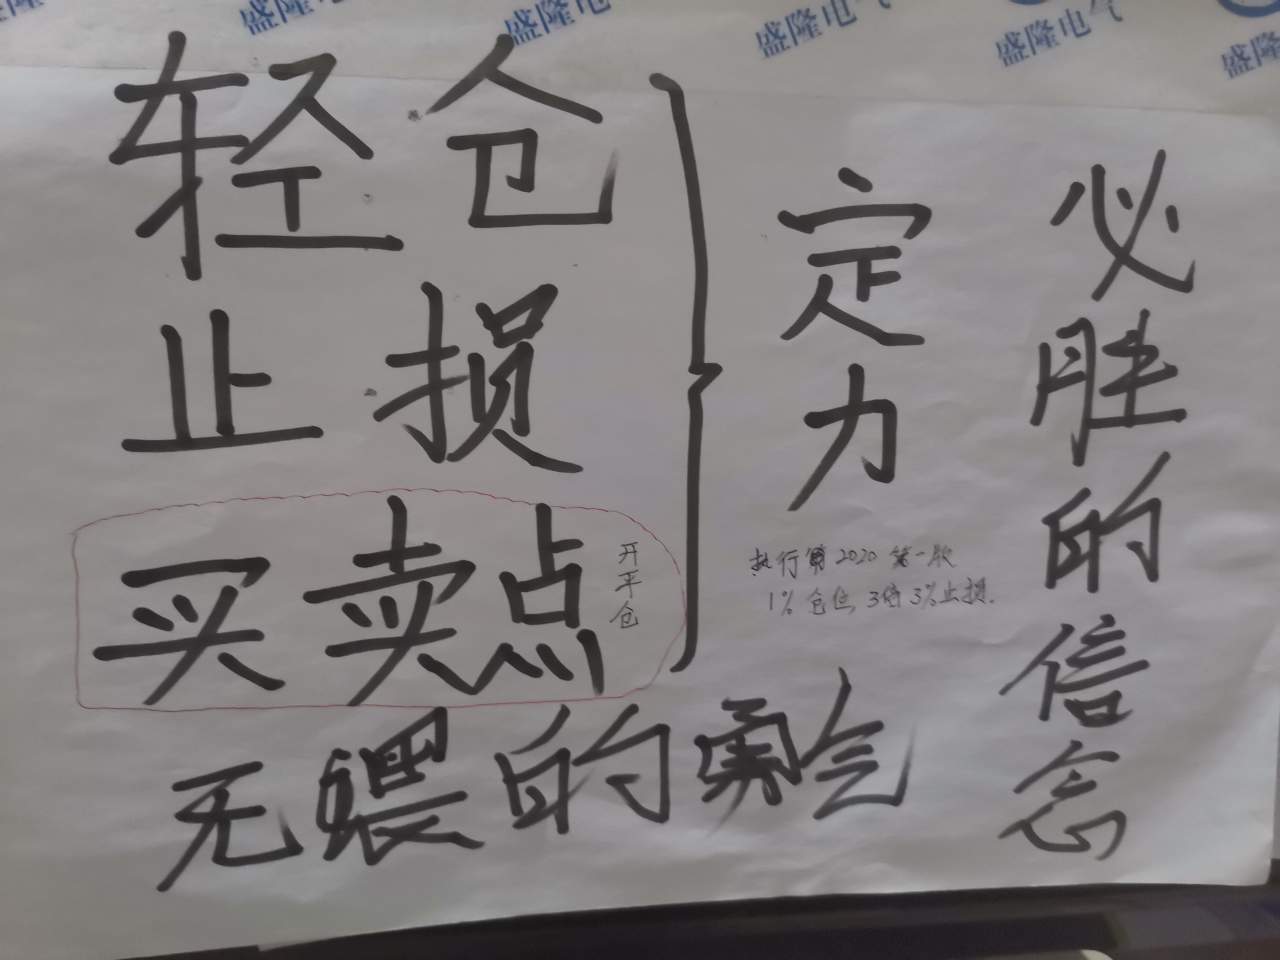 盛隆电气
盛隆电气
盛隆电气
盛隆电
轻仓
止损
买卖点
开平仓
定力
执行第2020第一版
1%仓位 3倍 3%止损.
必胜的信念
无畏的勇气